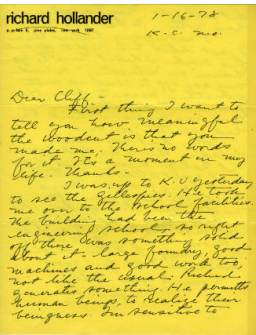 richard hollander
1-16-78
K.C. Mo.
Dear Cliff -
First thing I want to
tell you how meaningful
the woodcut is that you
made me. There is no words
for it. Its a moment in my
life. Thanks.
I was up to K.U yesterday
to see the Gillespies. He took
me over to the school facilities.
The building had been the
engineering school, so right
off there was something solid
about it: large foundry, good
machines and good work too,
not like the usual. Richard
generates something. He permits
human beings to realize their
beingness. I'm sensitive to